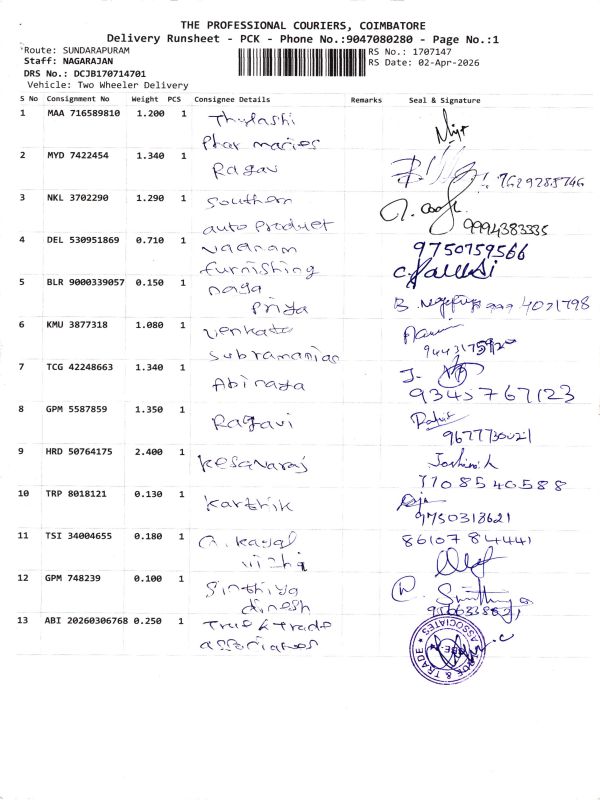 THE PROFESSIONAL COURIERS, COIMBATORE
Delivery Runsheet - PCK - Phone No.:9047080280 - Page No.:1
Route: SUNDARAPURAM
RS No.: 1707147
Staff: NAGARAJAN
RS Date: 02-Apr-2026
DRS No.: DCJB170714701
Vehicle: Two Wheeler Delivery
S No Consignment No Weight PCS Consignee Details Remarks Seal & Signature
1 MAA 716589810 1.200 1 Thulashi
Pharmacies
2 MYD 7422454 1.340 1 Ragav
7629285746
3 NKL 3702290 1.290 1 Southern
auto Product 9994383335
4 DEL 530951869 0.710 1 9750759566
furnishing
5 BLR 9000339057 0.150 1 naga
Priya
6 KMU 3877318 1.080 1 venkata
subramanian
7 TCG 42248663 1.340 1 Abinaya J.
9345767123
8 GPM 5587859 1.350 1 Ragavi
9677730021
9 HRD 50764175 2.400 1 kesavaraj
7708540588
10 TRP 8018121 0.130 1 karthik
9750318621
11 TSI 34004655 0.180 1 8610784441
12 GPM 748239 0.100 1 Sinthiya
dinesh
13 ABI 20260306768 0.250 1 True & Trade
associates
TRUE & TRADE ASSOCIATES